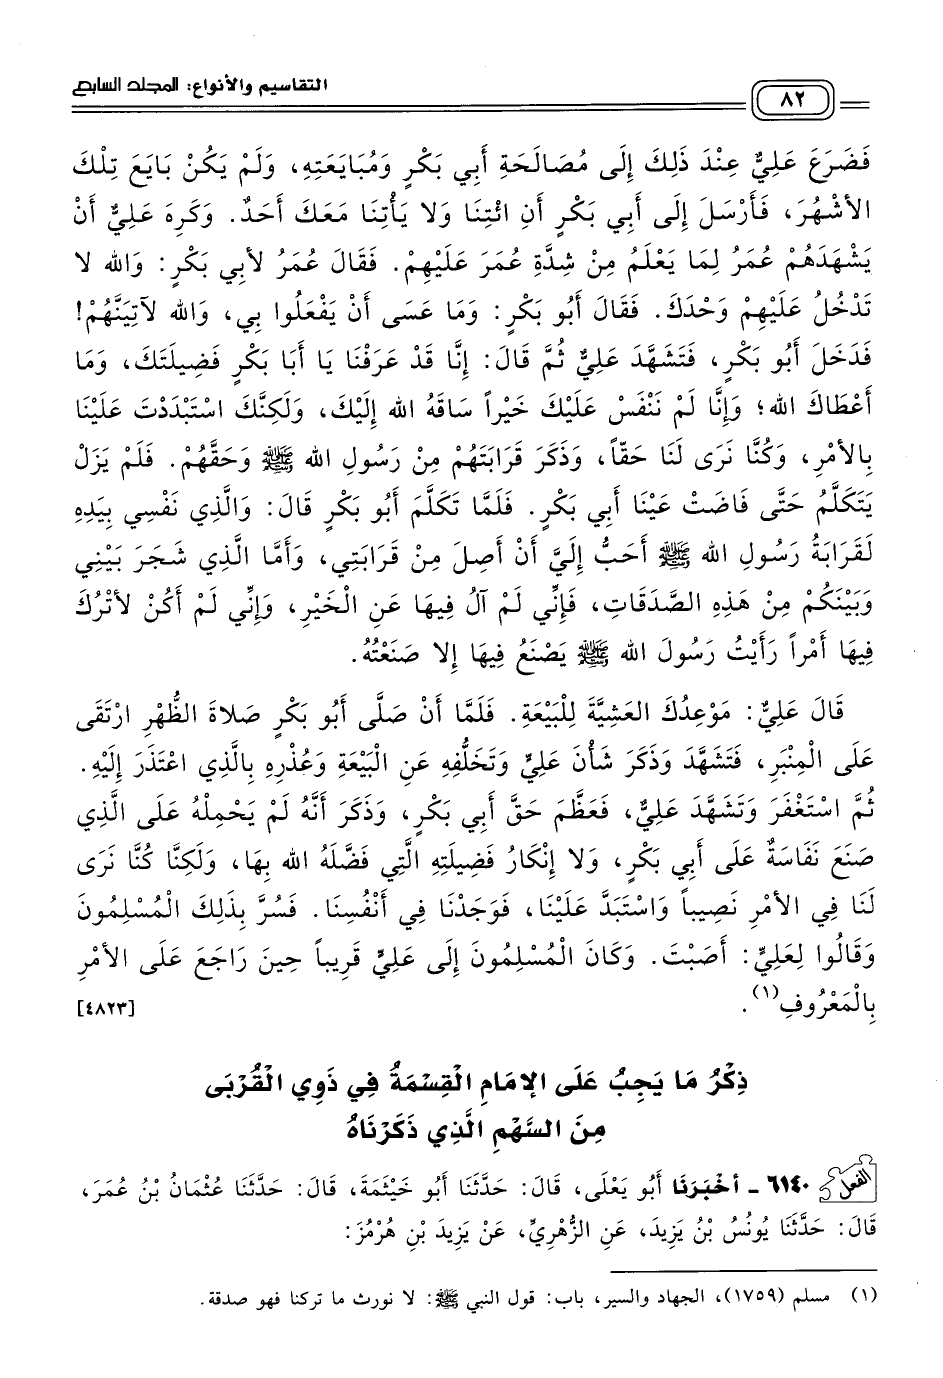 التقاسيم والأنواع: المجلد السابع
٨٢
فَضَرَعَ عَلِيٌّ عِنْدَ ذَلِكَ إِلَى مُصَالَحَةِ أَبِي بَكْرٍ وَمُبَايَعَتِهِ، وَلَمْ يَكُنْ بَايَعَ تِلْكَ
الأَشْهُرَ، فَأَرْسَلَ إِلَى أَبِي بَكْرٍ أَنِ ائْتِنَا وَلا يَأْتِنَا مَعَكَ أَحَدٌ. وَكَرِهَ عَلِيٌّ أَنْ
يَشْهَدَهُمْ عُمَرُ لِمَا يَعْلَمُ مِنْ شِدَّةِ عُمَرَ عَلَيْهِمْ. فَقَالَ عُمَرُ لأَبِي بَكْرٍ: وَالله لا
تَدْخُلُ عَلَيْهِمْ وَحْدَكَ. فَقَالَ أَبُو بَكْرٍ: وَمَا عَسَى أَنْ يَفْعَلُوا بِي، وَالله لآتِيَنَّهُمْ!
فَدَخَلَ أَبُو بَكْرٍ، فَتَشَهَّدَ عَلِيٌّ ثُمَّ قَالَ: إِنَّا قَدْ عَرَفْنَا يَا أَبَا بَكْرٍ فَضِيلَتَكَ، وَمَا
أَعْطَاكَ الله؛ وَإِنَّا لَمْ نَنْفَسْ عَلَيْكَ خَيْراً سَاقَهُ الله إِلَيْكَ، وَلَكِنَّكَ اسْتَبْدَدْتَ عَلَيْنَا
بِالأَمْرِ، وَكُنَّا نَرَى لَنَا حَقّاً، وَذَكَرَ قَرَابَتَهُمْ مِنْ رَسُولِ الله ﷺ وَحَقَّهُمْ. فَلَمْ يَزَلْ
يَتَكَلَّمُ حَتَّى فَاضَتْ عَيْنَا أَبِي بَكْرٍ. فَلَمَّا تَكَلَّمَ أَبُو بَكْرٍ قَالَ: وَالَّذِي نَفْسِي بِيَدِهِ
لَقَرَابَةُ رَسُولِ الله ﷺ أَحَبُّ إِلَيَّ أَنْ أَصِلَ مِنْ قَرَابَتِي، وَأَمَّا الَّذِي شَجَرَ بَيْنِي
وَبَيْنَكُمْ مِنْ هَذِهِ الصَّدَقَاتِ، فَإِنِّي لَمْ آلُ فِيهَا عَنِ الْخَيْرِ، وَإِنِّي لَمْ أَكُنْ لأَتْرُكَ
فِيهَا أَمْراً رَأَيْتُ رَسُولَ الله ﷺ يَصْنَعُ فِيهَا إِلا صَنَعْتُهُ.
قَالَ عَلِيٌّ: مَوْعِدُكَ العَشِيَّةَ لِلْبَيْعَةِ. فَلَمَّا أَنْ صَلَّى أَبُو بَكْرٍ صَلاةَ الظُّهْرِ ارْتَقَى
عَلَى الْمِنْبَرِ، فَتَشَهَّدَ وَذَكَرَ شَأْنَ عَلِيٍّ وَتَخَلُّفِهِ عَنِ الْبَيْعَةِ وَعُذْرِهِ بِالَّذِي اعْتَذَرَ إِلَيْهِ.
ثُمَّ اسْتَغْفَرَ وَتَشَهَّدَ عَلِيٌّ، فَعَظَّمَ حَقَّ أَبِي بَكْرٍ، وَذَكَرَ أَنَّهُ لَمْ يَحْمِلْهُ عَلَى الَّذِي
صَنَعَ نَفَاسَةٌ عَلَى أَبِي بَكْرٍ، وَلا إِنْكَارُ فَضِيلَتِهِ الَّتِي فَضَّلَهُ الله بِهَا، وَلَكِنَّا كُنَّا نَرَى
لَنَا فِي الأَمْرِ نَصِيباً وَاسْتَبَدَّ عَلَيْنَا، فَوَجَدْنَا فِي أَنْفُسِنَا. فَسُرَّ بِذَلِكَ الْمُسْلِمُونَ
وَقَالُوا لِعَلِيٍّ: أَصَبْتَ. وَكَانَ الْمُسْلِمُونَ إِلَى عَلِيٍّ قَرِيباً حِينَ رَاجَعَ عَلَى الأَمْرِ
بِالْمَعْرُوفِ(١). [٤٨٢٣]
ذِكْرُ مَا يَجِبُ عَلَى الإِمَامِ الْقِسْمَةُ فِي ذَوِي الْقُرْبَى
مِنَ السَّهْمِ الَّذِي ذَكَرْنَاهُ
الفعل ٦١٤٠ - أَخْبَرَنَا أَبُو يَعْلَى، قَالَ: حَدَّثَنَا أَبُو خَيْثَمَةَ، قَالَ: حَدَّثَنَا عُثْمَانُ بْنُ عُمَرَ،
قَالَ: حَدَّثَنَا يُونُسُ بْنُ يَزِيدَ، عَنِ الزُّهْرِيِّ، عَنْ يَزِيدَ بْنِ هُرْمُزَ:
(١) مسلم (١٧٥٩)، الجهاد والسير، باب: قول النبي ﷺ: لا نورث ما تركنا فهو صدقة.